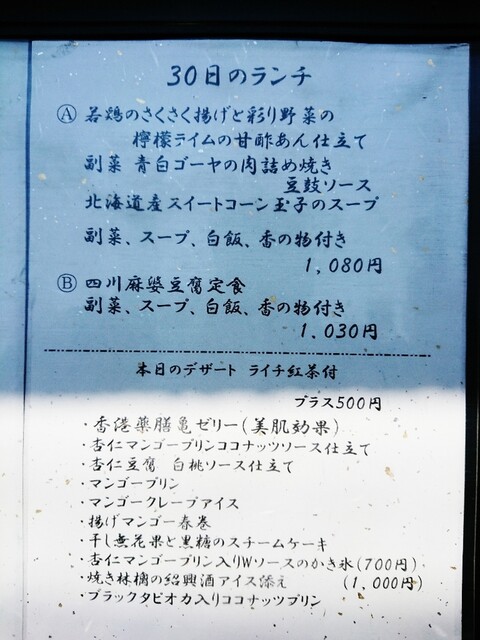 30日のランチ
Ⓐ 若鶏のさくさく揚げと彩り野菜の
檸檬ライムの甘酢あん仕立て
副菜 青白ゴーヤの肉詰め焼き
豆鼓ソース
北海道産スイートコーン玉子のスープ
副菜、スープ、白飯、香の物付き
1,080円
Ⓑ 四川麻婆豆腐定食
副菜、スープ、白飯、香の物付き
1,030円
本日のデザート ライチ紅茶付
プラス500円
・香港薬膳亀ゼリー(美肌効果)
・杏仁マンゴープリンココナッツソース仕立て
・杏仁豆腐 白桃ソース仕立て
・マンゴープリン
・マンゴークレープアイス
・揚げマンゴー春巻
・干し無花果と黒糖のスチームケーキ
・杏仁マンゴープリン入りWソースのかき氷(700円)
・焼き林檎の紹興酒アイス添え (1,000円)
・ブラックタピオカ入りココナッツプリン